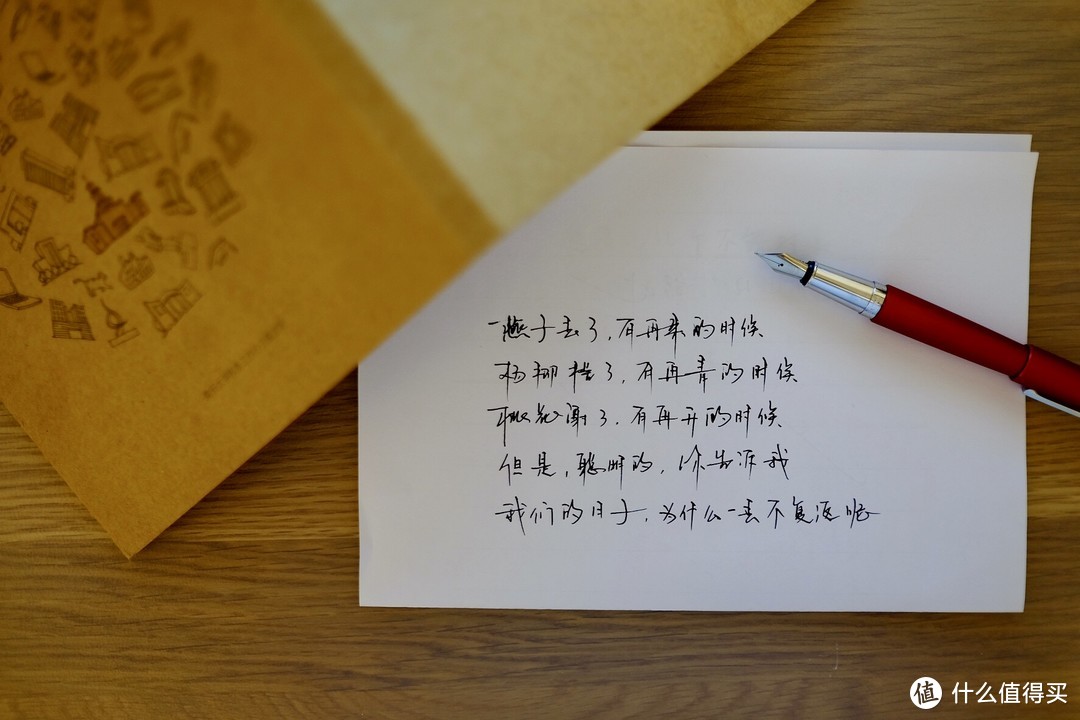 燕子去了，有再来的时候
杨柳枯了，有再青的时候
桃花谢了，有再开的时候
但是，聪明的，你告诉我
我们的日子，为什么一去不复返呢
值 什么值得买